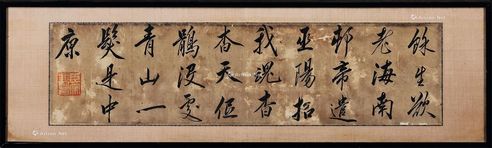 餘生欲
老海南
邨帝遣
巫陽招
我魂杳
杳天低
鶻没處
青山一
髮是中
原
Artron.Net